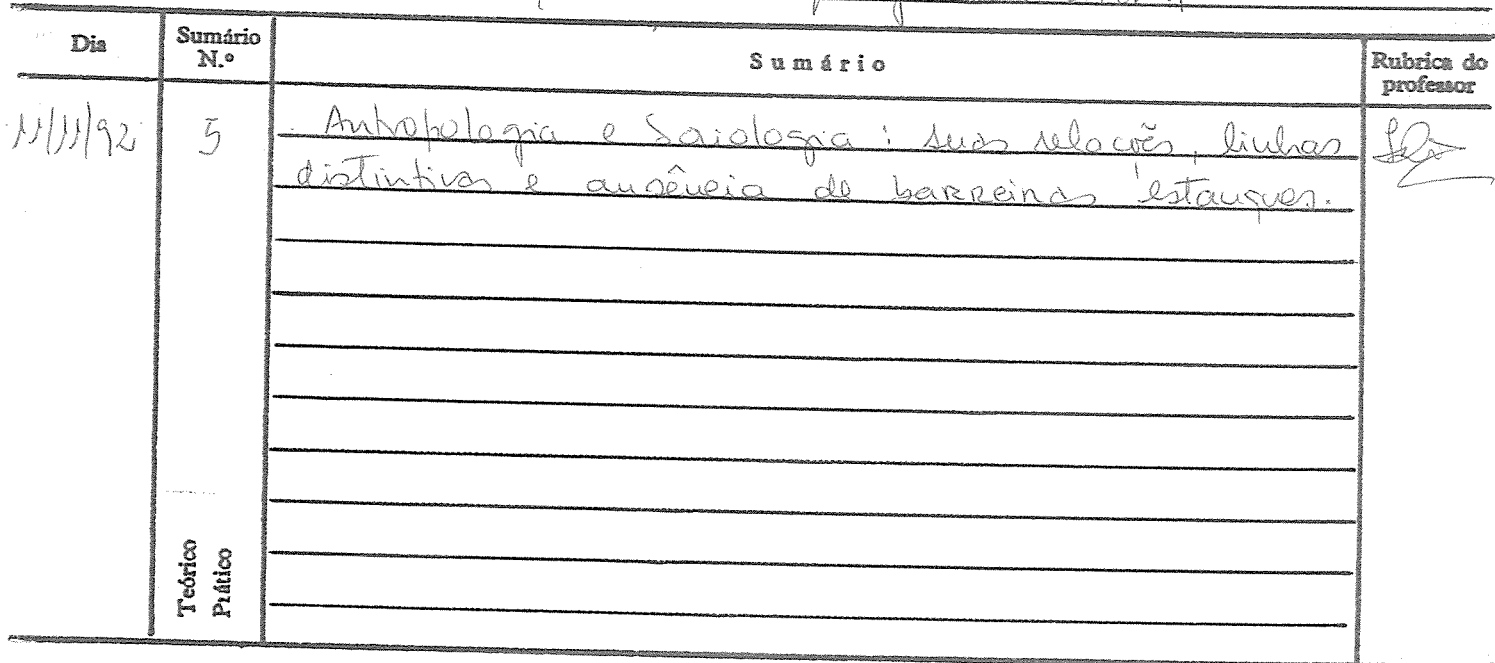 Dia
Sumário N.º
Sumário
Rubrica do professor
11/11/92
5
Antropologia e Sociologia : suas relações, linhas
distintivas e ausência de barreiras estanques.
Teórico
Prático